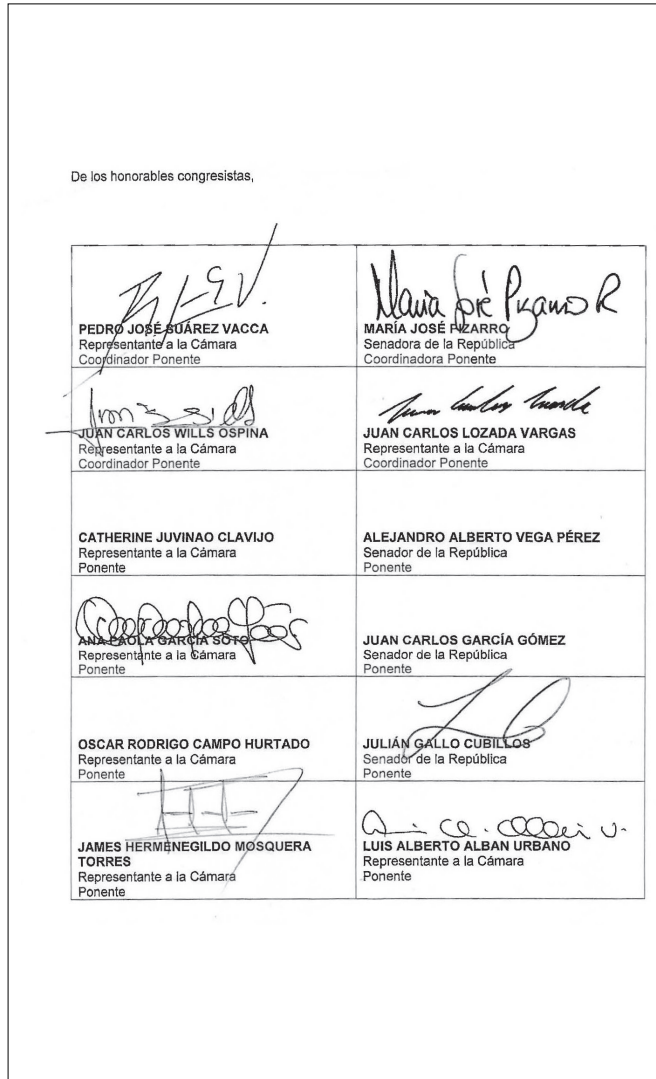 De los honorables congresistas,
PEDRO JOSÉ SUÁREZ VACCA
Representante a la Cámara
Coordinador Ponente
Maria José Pizarro R
MARÍA JOSÉ PIZARRO
Senadora de la República
Coordinadora Ponente
JUAN CARLOS WILLS OSPINA
Representante a la Cámara
Coordinador Ponente
JUAN CARLOS LOZADA VARGAS
Representante a la Cámara
Coordinador Ponente
CATHERINE JUVINAO CLAVIJO
Representante a la Cámara
Ponente
ALEJANDRO ALBERTO VEGA PÉREZ
Senador de la República
Ponente
ANA PAOLA GARCÍA SOTO
Representante a la Cámara
Ponente
JUAN CARLOS GARCÍA GÓMEZ
Senador de la República
Ponente
OSCAR RODRIGO CAMPO HURTADO
Representante a la Cámara
Ponente
JULIÁN GALLO CUBILLOS
Senador de la República
Ponente
JAMES HERMENEGILDO MOSQUERA
TORRES
Representante a la Cámara
Ponente
LUIS ALBERTO ALBAN URBANO
Representante a la Cámara
Ponente